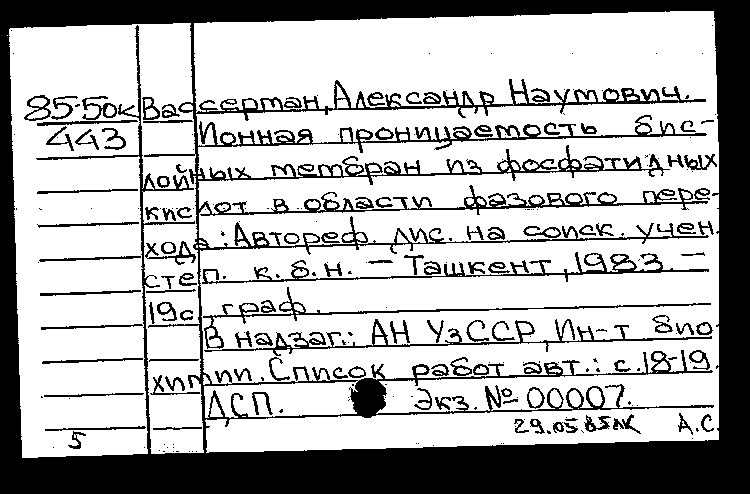 85-50к Вассерман, Александр Наумович.
443 Ионная проницаемость бис-
лойных мембран из фосфатидных
кислот в области фазового пере-
хода: Автореф. дис. на соиск. учен.
степ. к.б.н. — Ташкент, 1983. —
19с, граф.
В надзаг.: АН УзССР, Ин-т био-
химии. Список работ авт.: с.18-19.
ДСП. Экз. № 00007.
29.05.85 А.С.
5